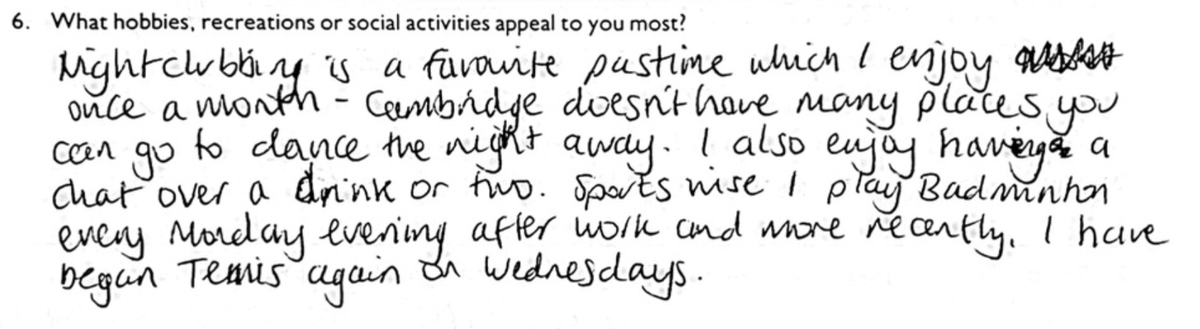 6. What hobbies, recreations or social activities appeal to you most?
Nightclubbing is a favourite pastime which I enjoy
once a month - Cambridge doesn't have many places you
can go to dance the night away. I also enjoy having a
chat over a drink or two. Sports wise I play Badminton
every Monday evening after work and more recently, I have
began Tennis again on Wednesdays.